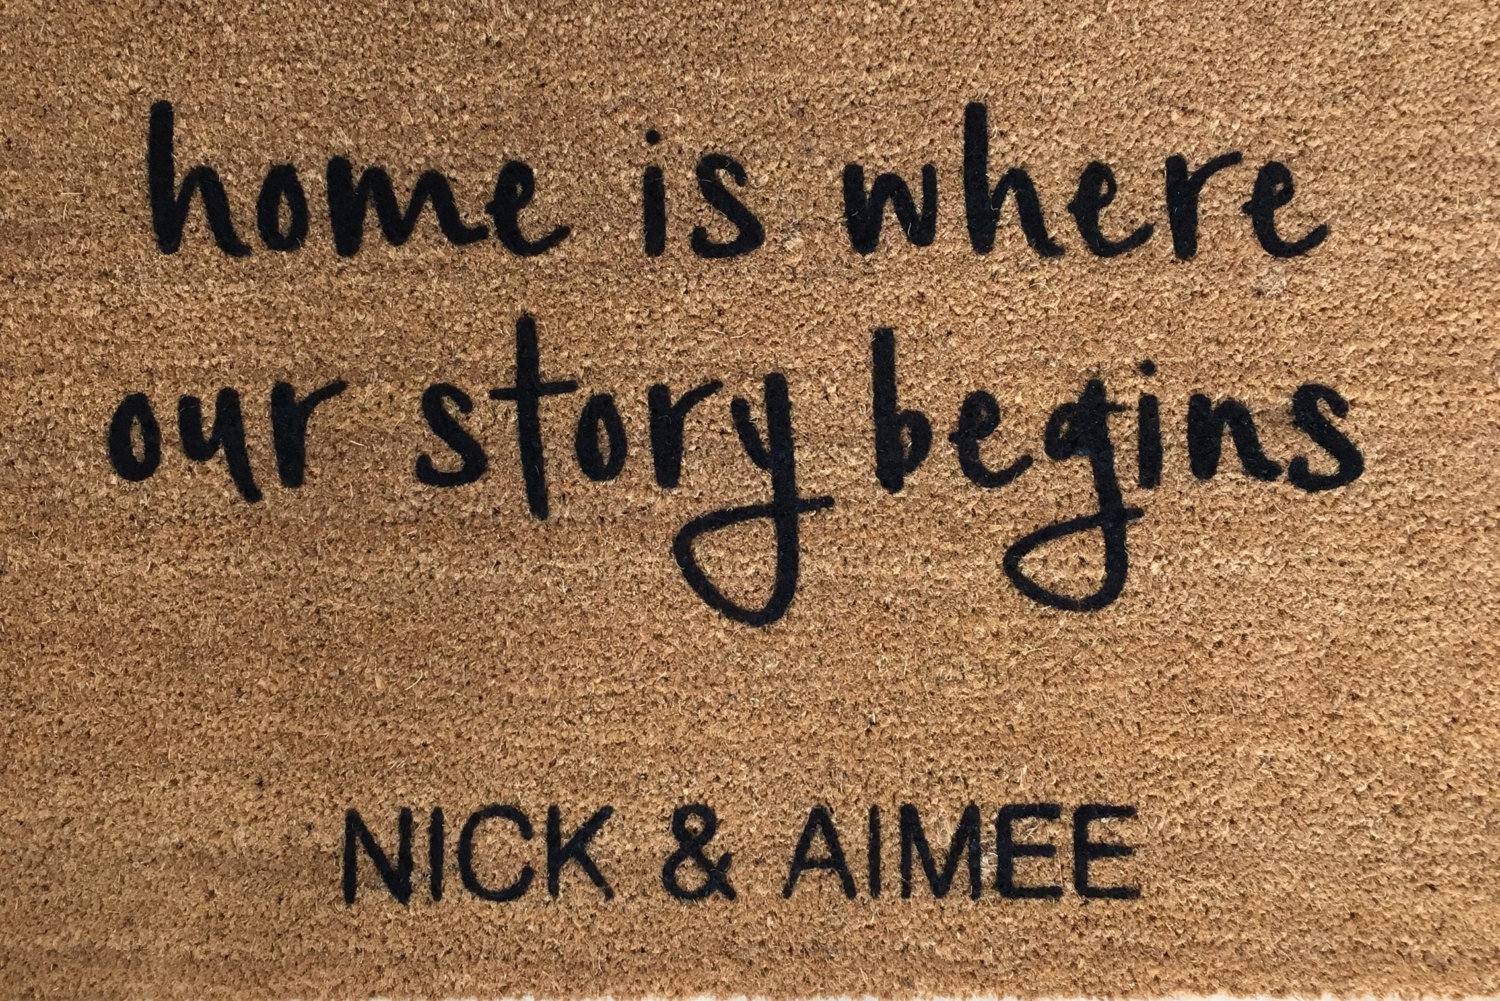 home is where
our story begins
NICK & AIMEE